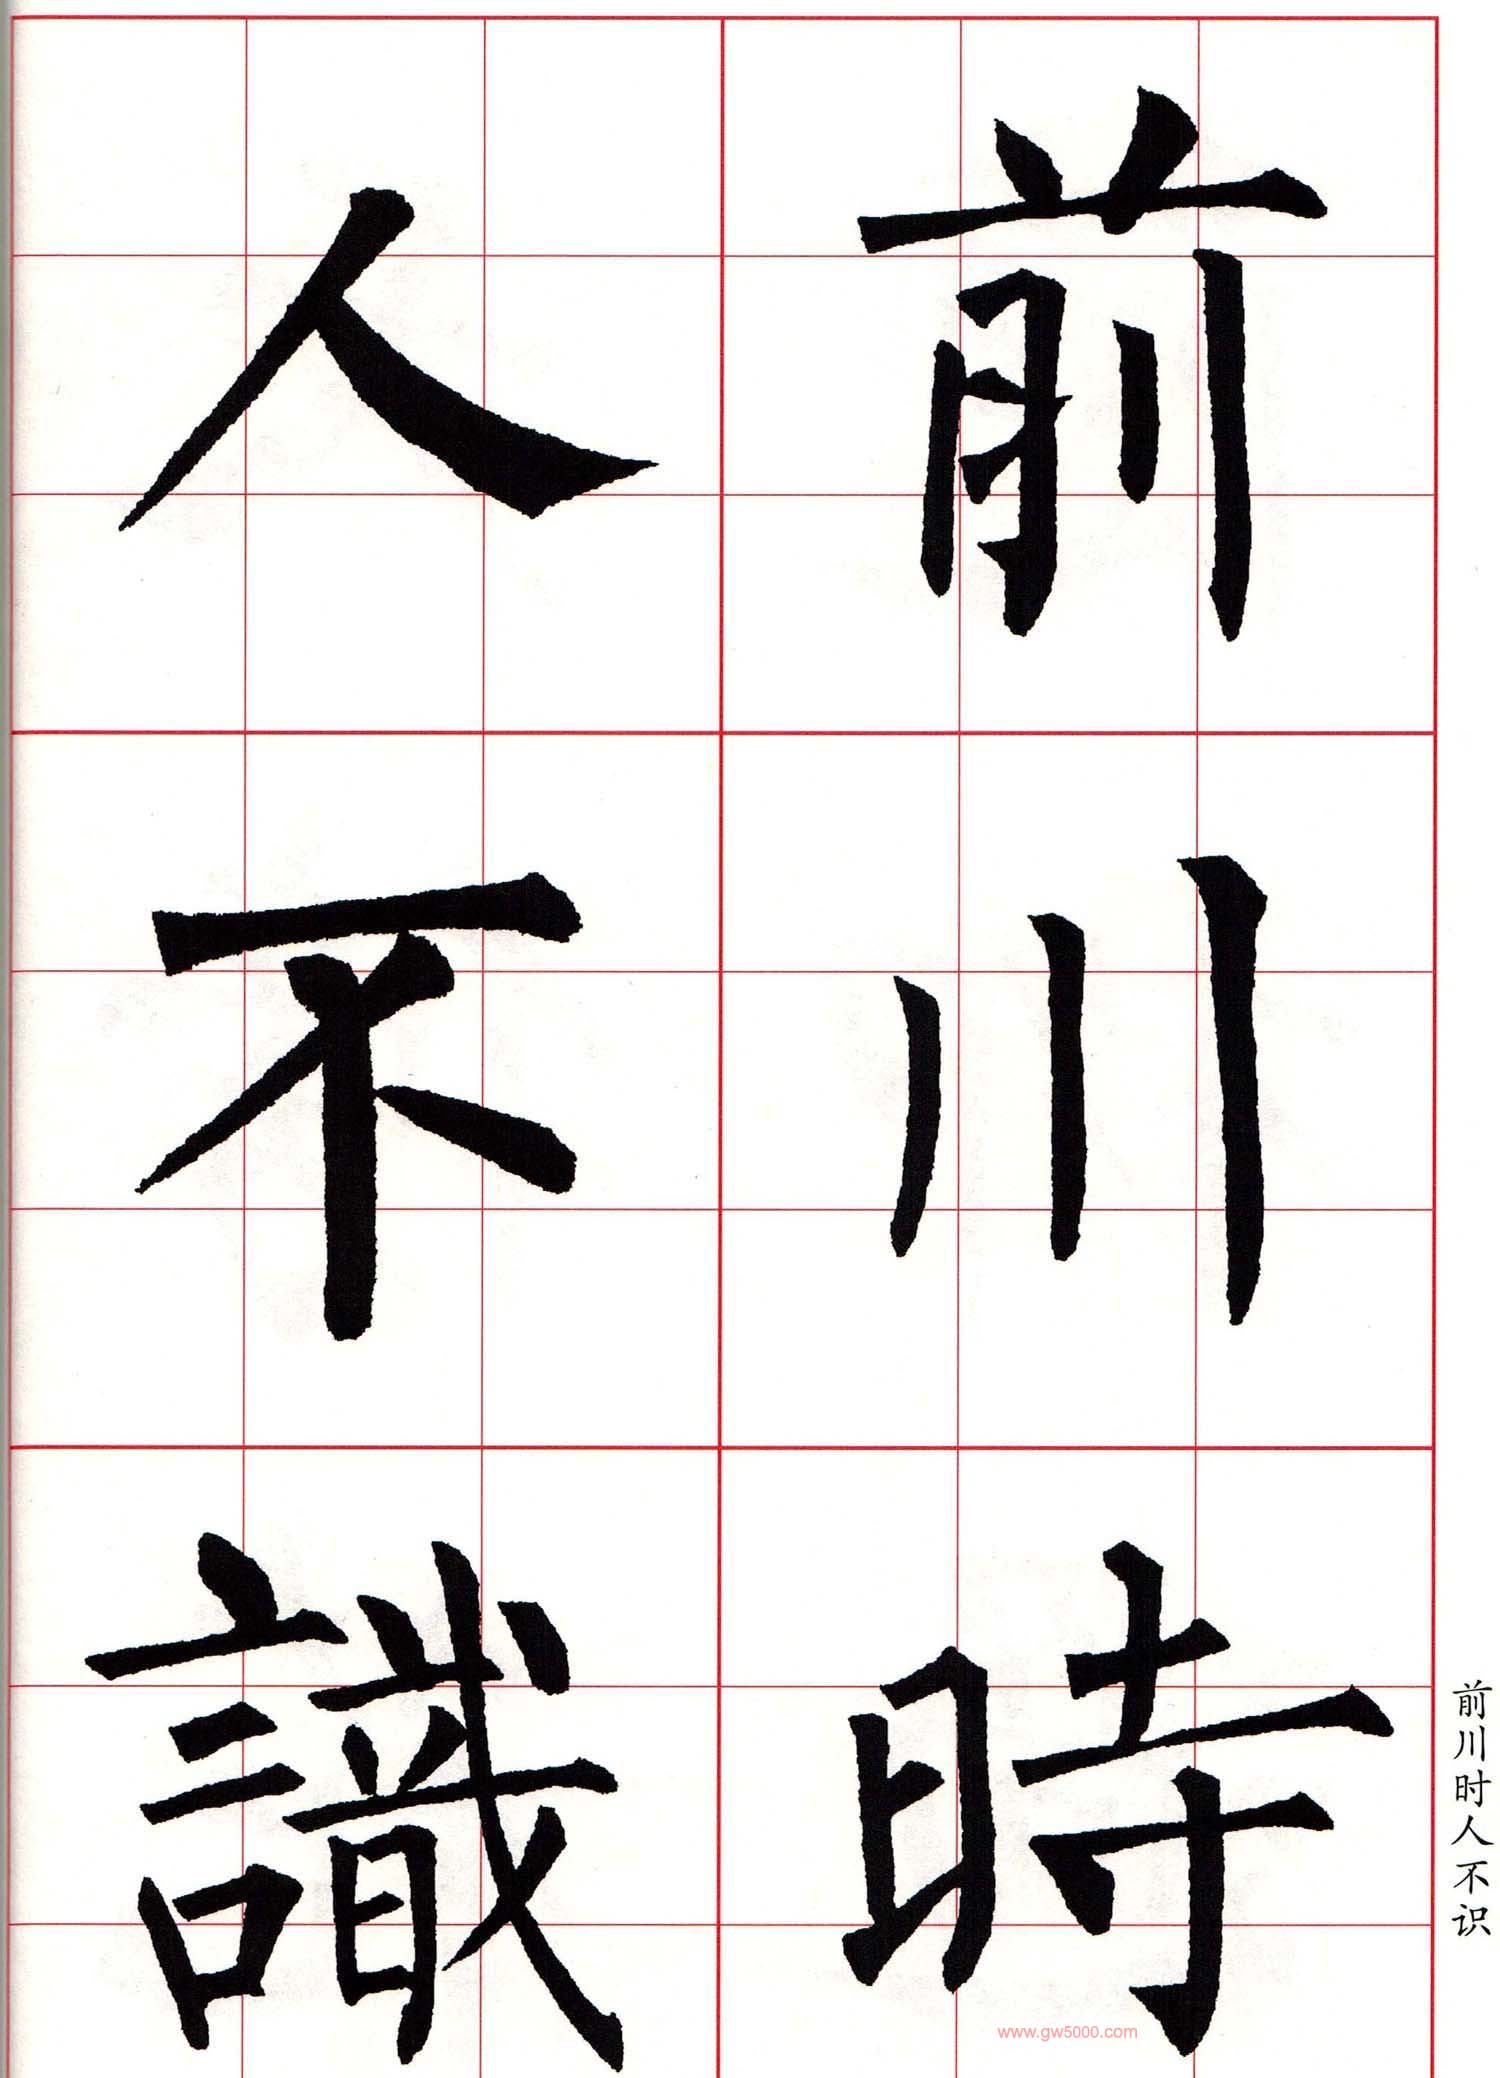 前川時
人不識
前川时人不识
www.gw5000.com